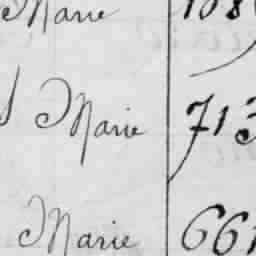 Marie 108
Marie 713
Marie 661